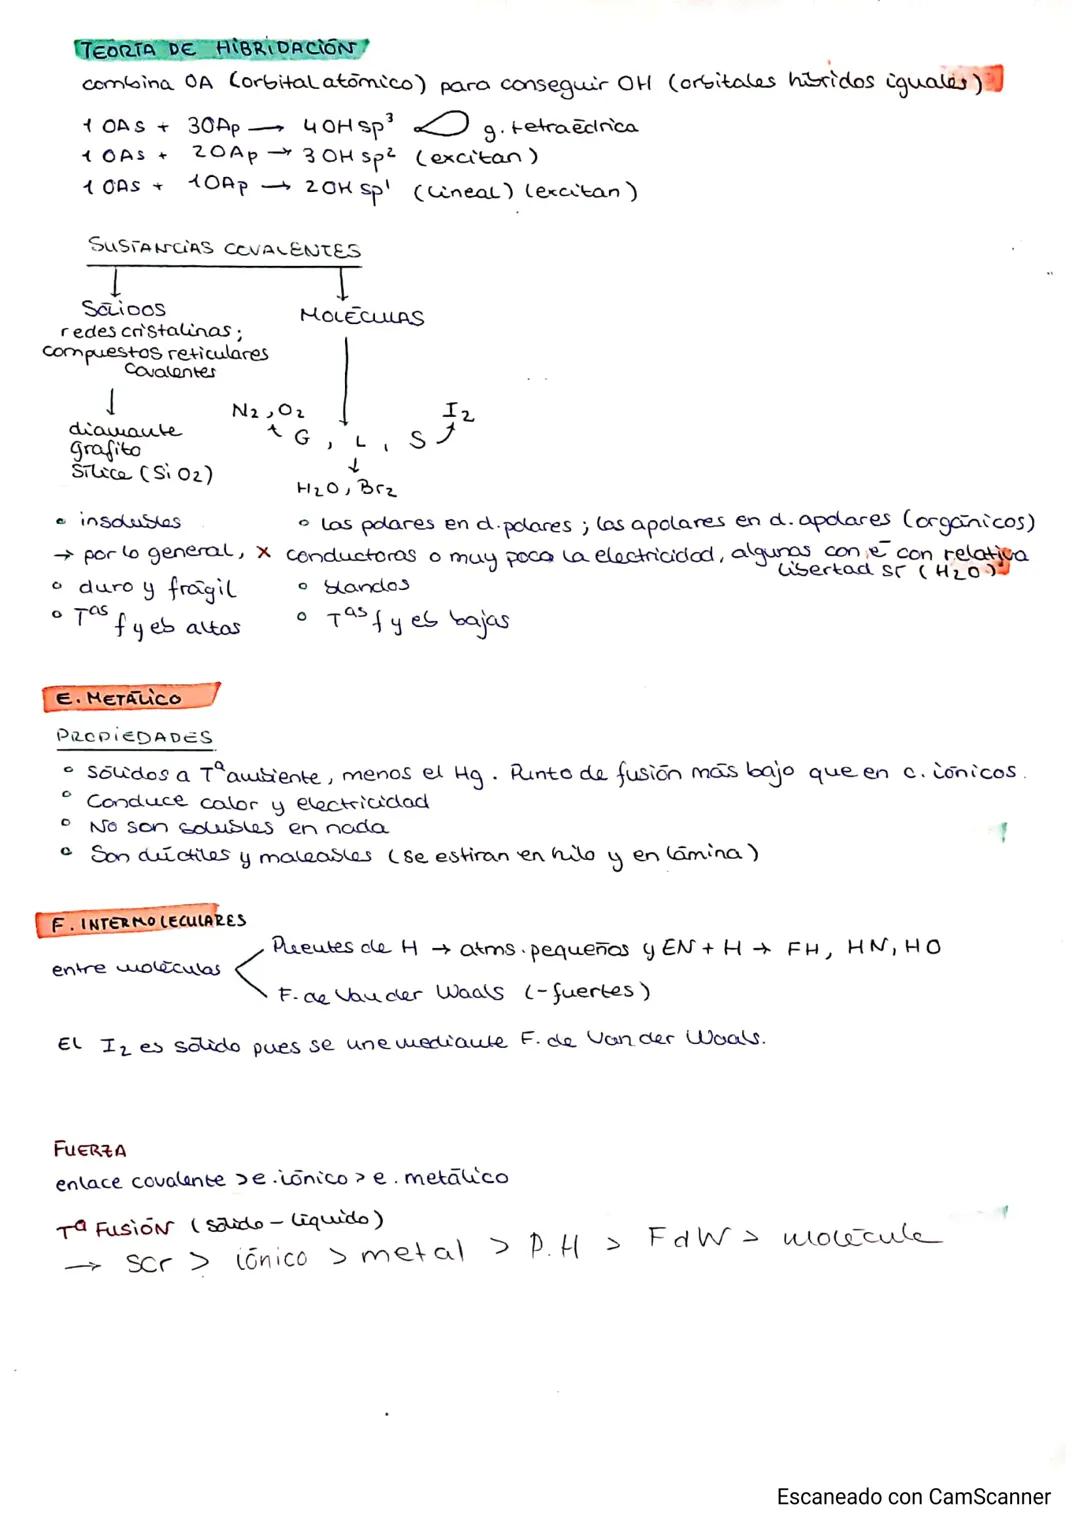 TEORÍA DE HIBRIDACIÓN
combina OA (orbital atómico) para conseguir OH (orbitales híbridos iguales)
1 OAs + 3OAp → 4OH sp³ g. tetraédrica
1 OAs + 2OAp → 3OH sp² (excitan)
1 OAs + 1OAp → 2OH sp¹ (lineal) (excitan)
SUSTANCIAS COVALENTES
SÓLIDOS
MOLÉCULAS
redes cristalinas;
compuestos reticulares
covalentes
N2, O2
I2
diamante
G, L, S
grafito
Sílice (SiO2)
H2O, Br2
• insolubles
• las polares en d. polares; las apolares en d. apolares (orgánicos)
→ por lo general, x conductoras o muy poco la electricidad, algunas con e⁻ con relativa
libertad sí (H2O)
• duro y frágil
• blandos
• Tas f y eb altas
• Tas f y eb bajas
E. METÁLICO
PROPIEDADES
• Sólidos a Tª ambiente, menos el Hg. Punto de fusión más bajo que en c. iónicos.
• Conduce calor y electricidad
• No son solubles en nada
• Son dúctiles y maleables (se estiran en hilo y en lámina)
F. INTERMOLECULARES
Puentes de H → atms. pequeños y EN + H → FH, HN, HO
entre moléculas
F. de Van der Waals (-fuertes)
El I2 es sólido pues se une mediante F. de Van der Waals.
FUERZA
enlace covalente > e. iónico > e. metálico
Tª FUSIÓN (sólido - líquido)
→ scr > iónico > metal > P.H > FdW > molécula
Escaneado con CamScanner